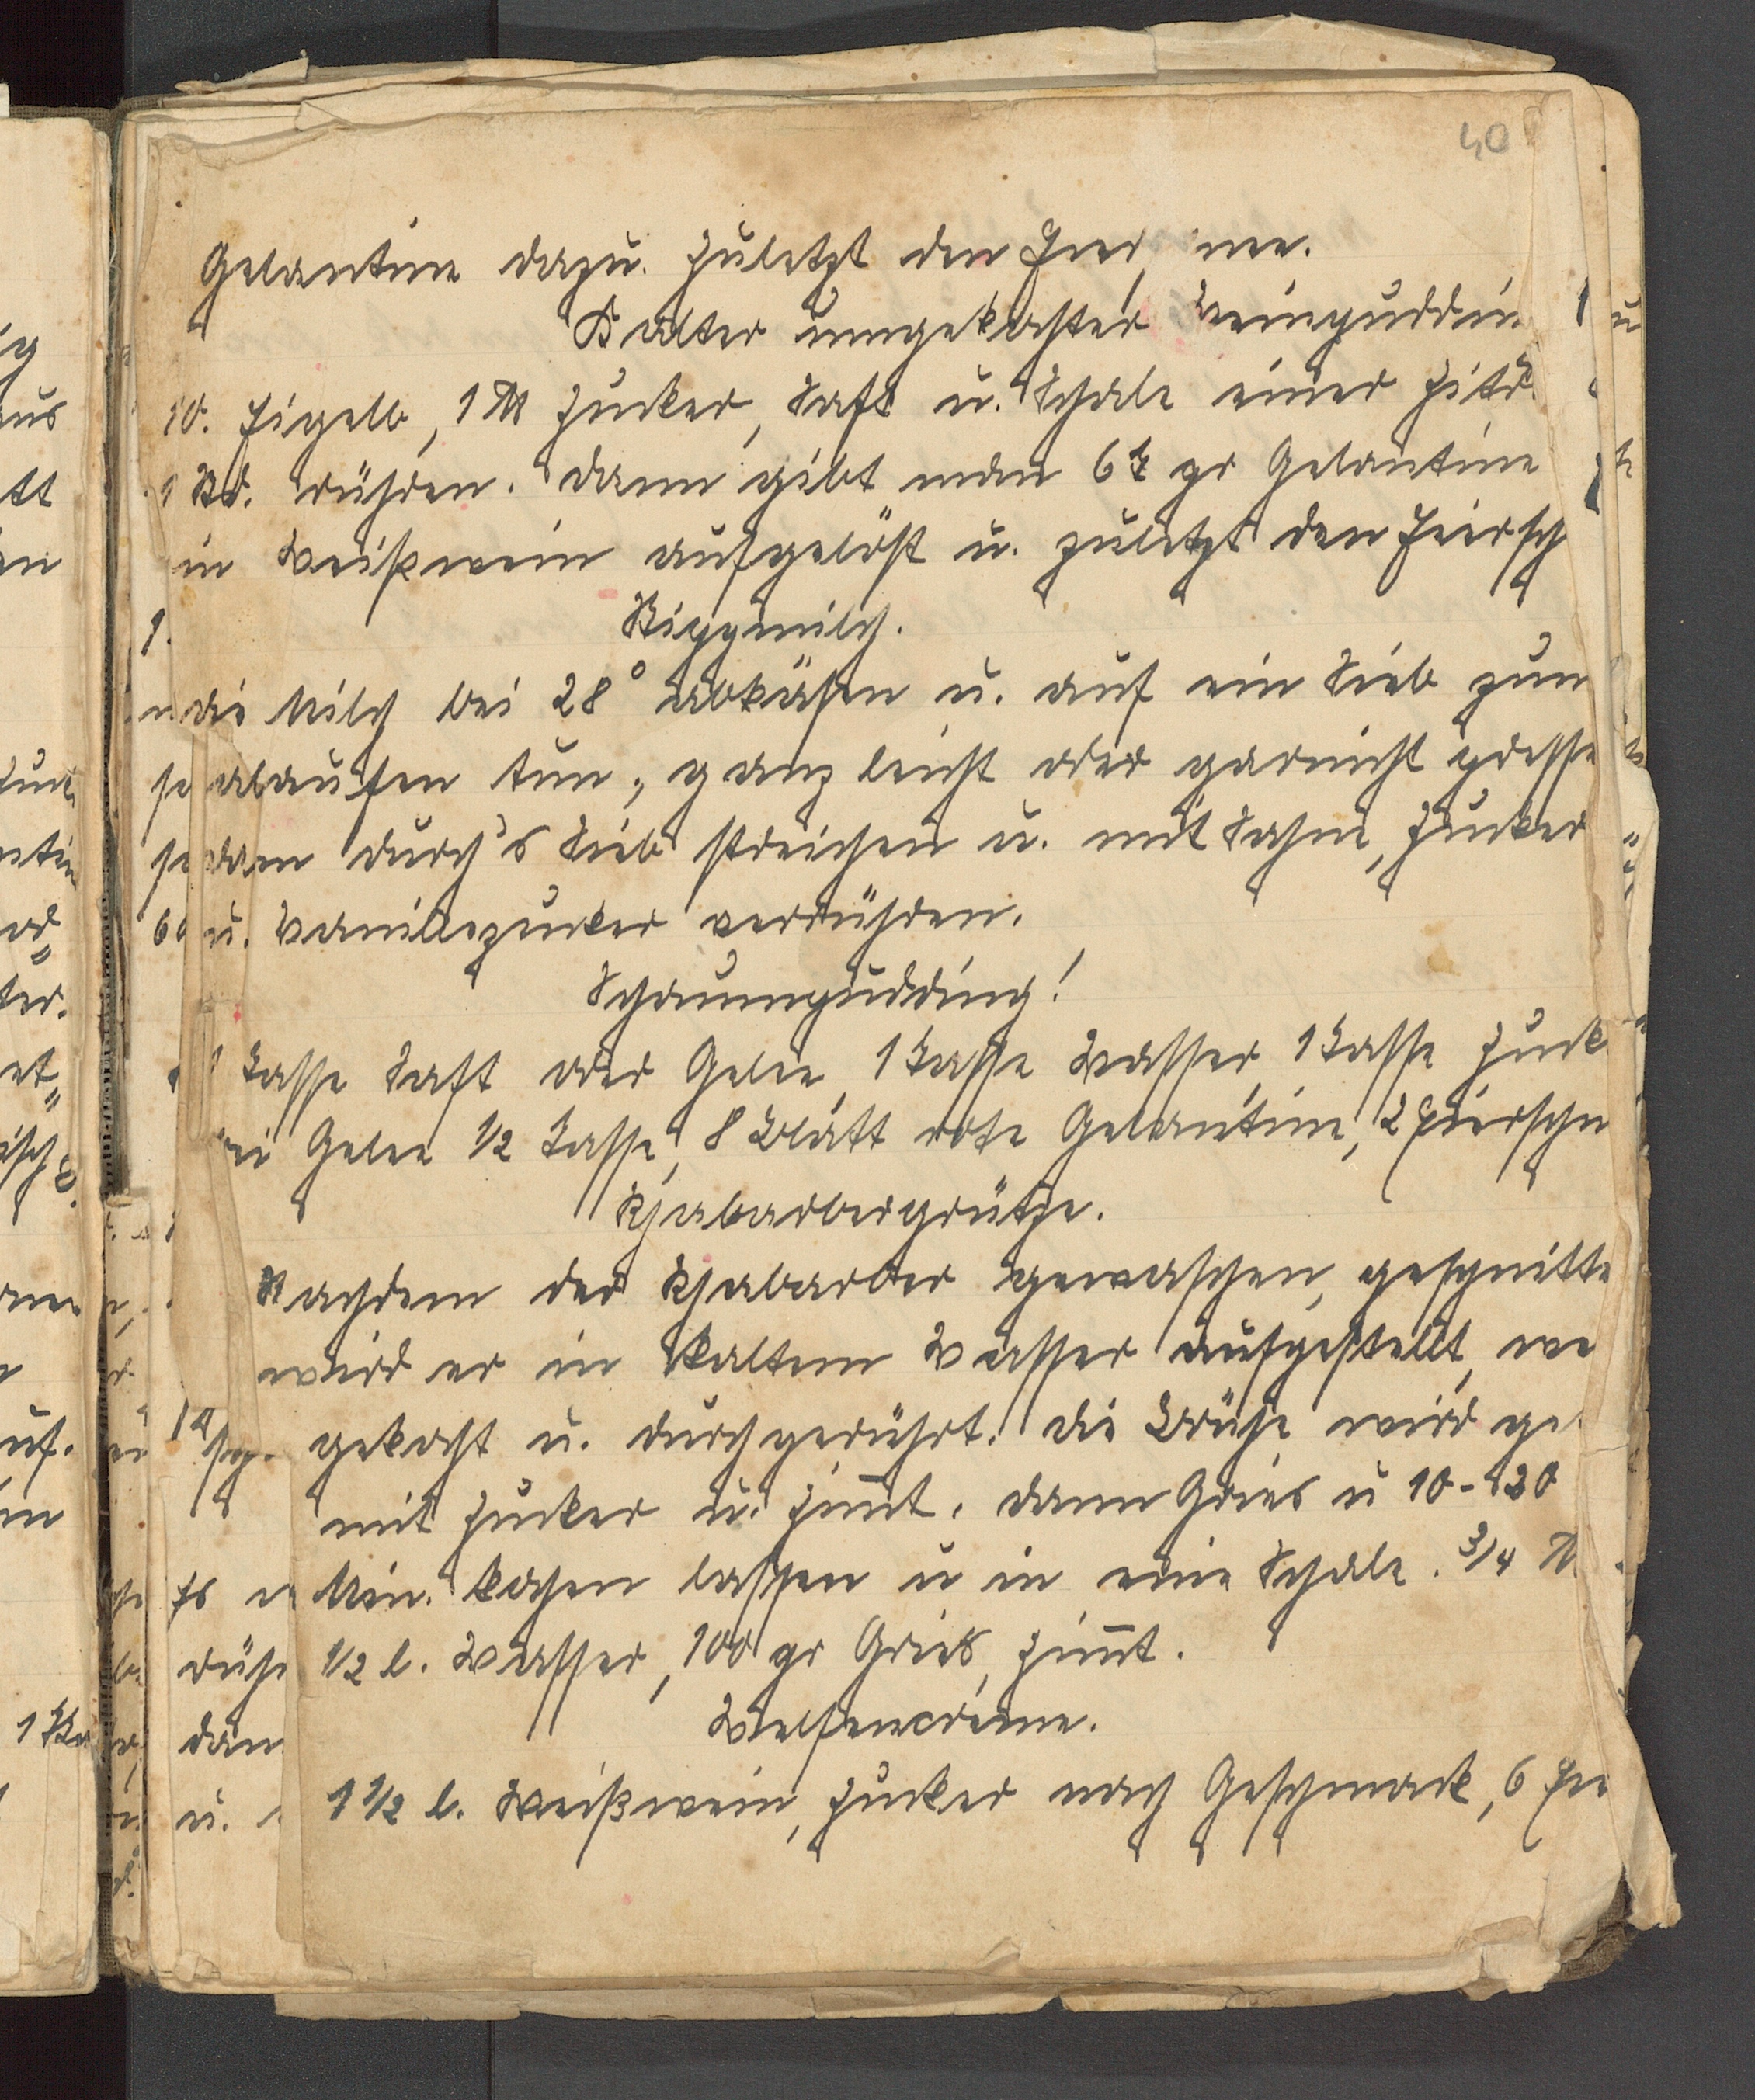 40
Gelantine dazu. Zuletzt den Eier
Kalter umgekochter Weinpuddin
10. Eigelb, 1 ℔ Zucker, Saft u. Schale einer Zitr.
1 Std. rühren. Dann gibt man 6 gr Gelantine
in Weißwein aufgelöst u. zuletzt den Eiersch
Stippmilch.
die Milch bei 28° abkäsen u. auf ein Sieb zum
ablaufen tun, ganz leicht oder garnicht presse
dann durch's Sieb streichen u. mit Sahne, Zucker
u. Vanillezucker verrühren.
Schaumpudding!
1 Tasse Saft oder Gelee, 1 Tasse Wasser, 1 Tasse Zuck
bei Gelee 1/2 Tasse, 8 Blatt rote Gelantine, 2 Eierschn
Rhabarbergrütze.
Nachdem der Rhabarber gewaschen, geschnitte
wird er in kaltem Wasser aufgestellt, we
gekocht u. durchgerührt. Die Brühe wird ge
mit Zucker u. Zimt. Dann Gries u 10-120
Min. kochen lassen u in eine Schale. 3/4 ℔
1/2 l. Wasser, 100 gr Gries, Zimt.
Welfencreme.
1 1/2 l. Weißwein, Zucker nach Geschmack, 6 Eie